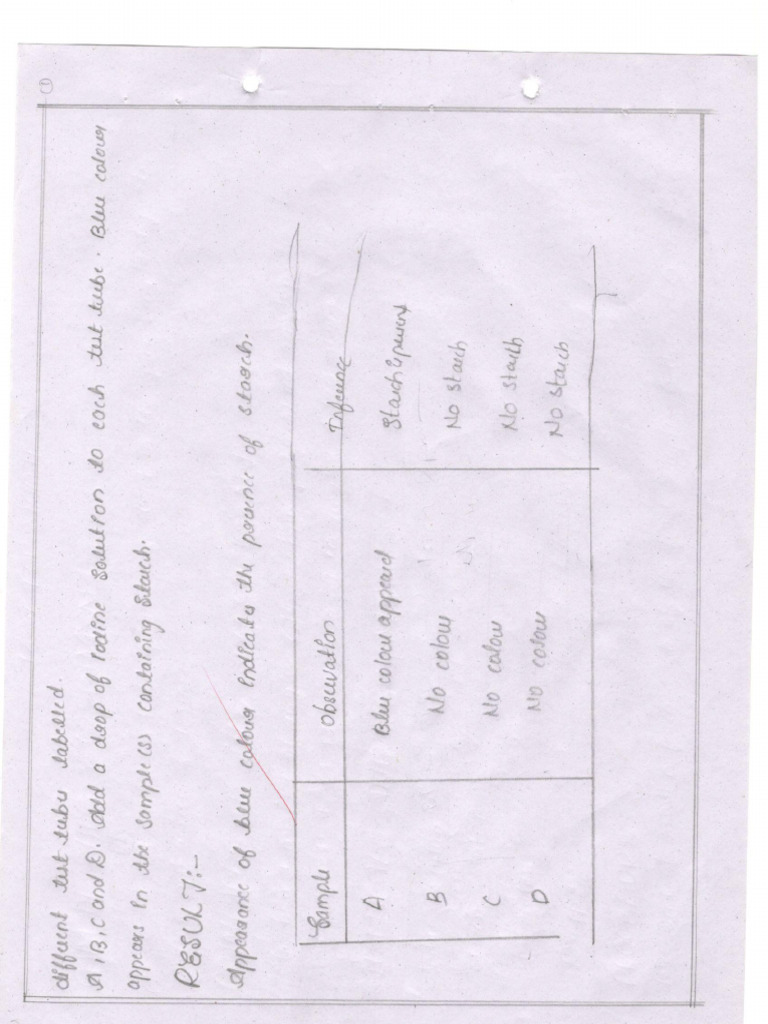 different test tubes labelled.
A, B, C and D. Add a drop of iodine solution to each test tube. Blue colour
appears in the sample(s) containing starch.
RESULT:-
Appearance of blue colour indicates the presence of starch.
Sample Observation Inference
A Blue colour appeared Starch is present
B No colour No starch
C No colour No starch
D No colour No starch